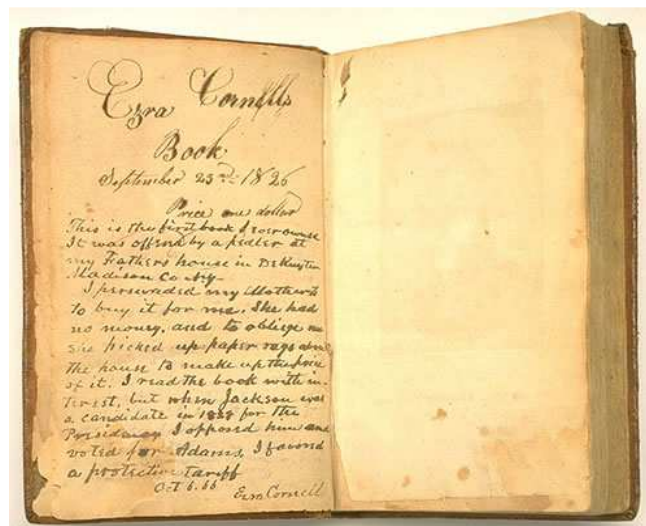 Ezra Cornells
Book
September 23rd 1826
Price one dollar
This is the first book I ever owned
It was offered by a pedler at
my Fathers house in DeRuyter
Madison Co NY.
I persuaded my Mother
to buy it for me. She had
no money, and to oblige me
she picked up paper rags about
the house to make up the price
of it. I read the book with in-
terest, but when Jackson was
a candidate in 1828 for the
Presidency I opposed him and
voted for Adams, I favord
a protective tariff
Oct 6. 66
Ezra Cornell